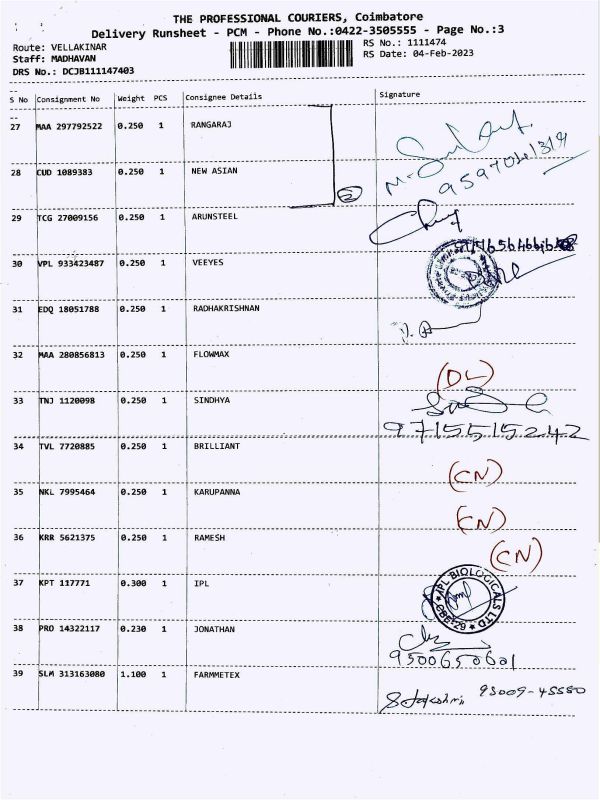 THE PROFESSIONAL COURIERS, Coimbatore
Delivery Runsheet - PCM - Phone No.:0422-3505555 - Page No.:3
Route: VELLAKINAR
RS No.: 1111474
Staff: MADHAVAN
RS Date: 04-Feb-2023
DRS No.: DCJB111147403
S No Consignment No Weight PCS Consignee Details Signature
27 MAA 297792522 0.250 1 RANGARAJ
9597041319
28 CUD 1089383 0.250 1 NEW ASIAN
2
29 TCG 27009156 0.250 1 ARUNSTEEL
30 VPL 933423487 0.250 1 VEEYES
31 EDQ 18051788 0.250 1 RADHAKRISHNAN
32 MAA 280856813 0.250 1 FLOWMAX
(DL)
33 TNJ 1120098 0.250 1 SINDHYA
9715515242
34 TVL 7720885 0.250 1 BRILLIANT
(CN)
35 NKL 7995464 0.250 1 KARUPANNA
(CN)
36 KRR 5621375 0.250 1 RAMESH
(CN)
37 KPT 117771 0.300 1 IPL
IPL BIOLOGICALS LTD
CBE-29
38 PRO 14322117 0.230 1 JONATHAN
9500650601
39 SLM 313163080 1.100 1 FARMMETEX
95009-45580